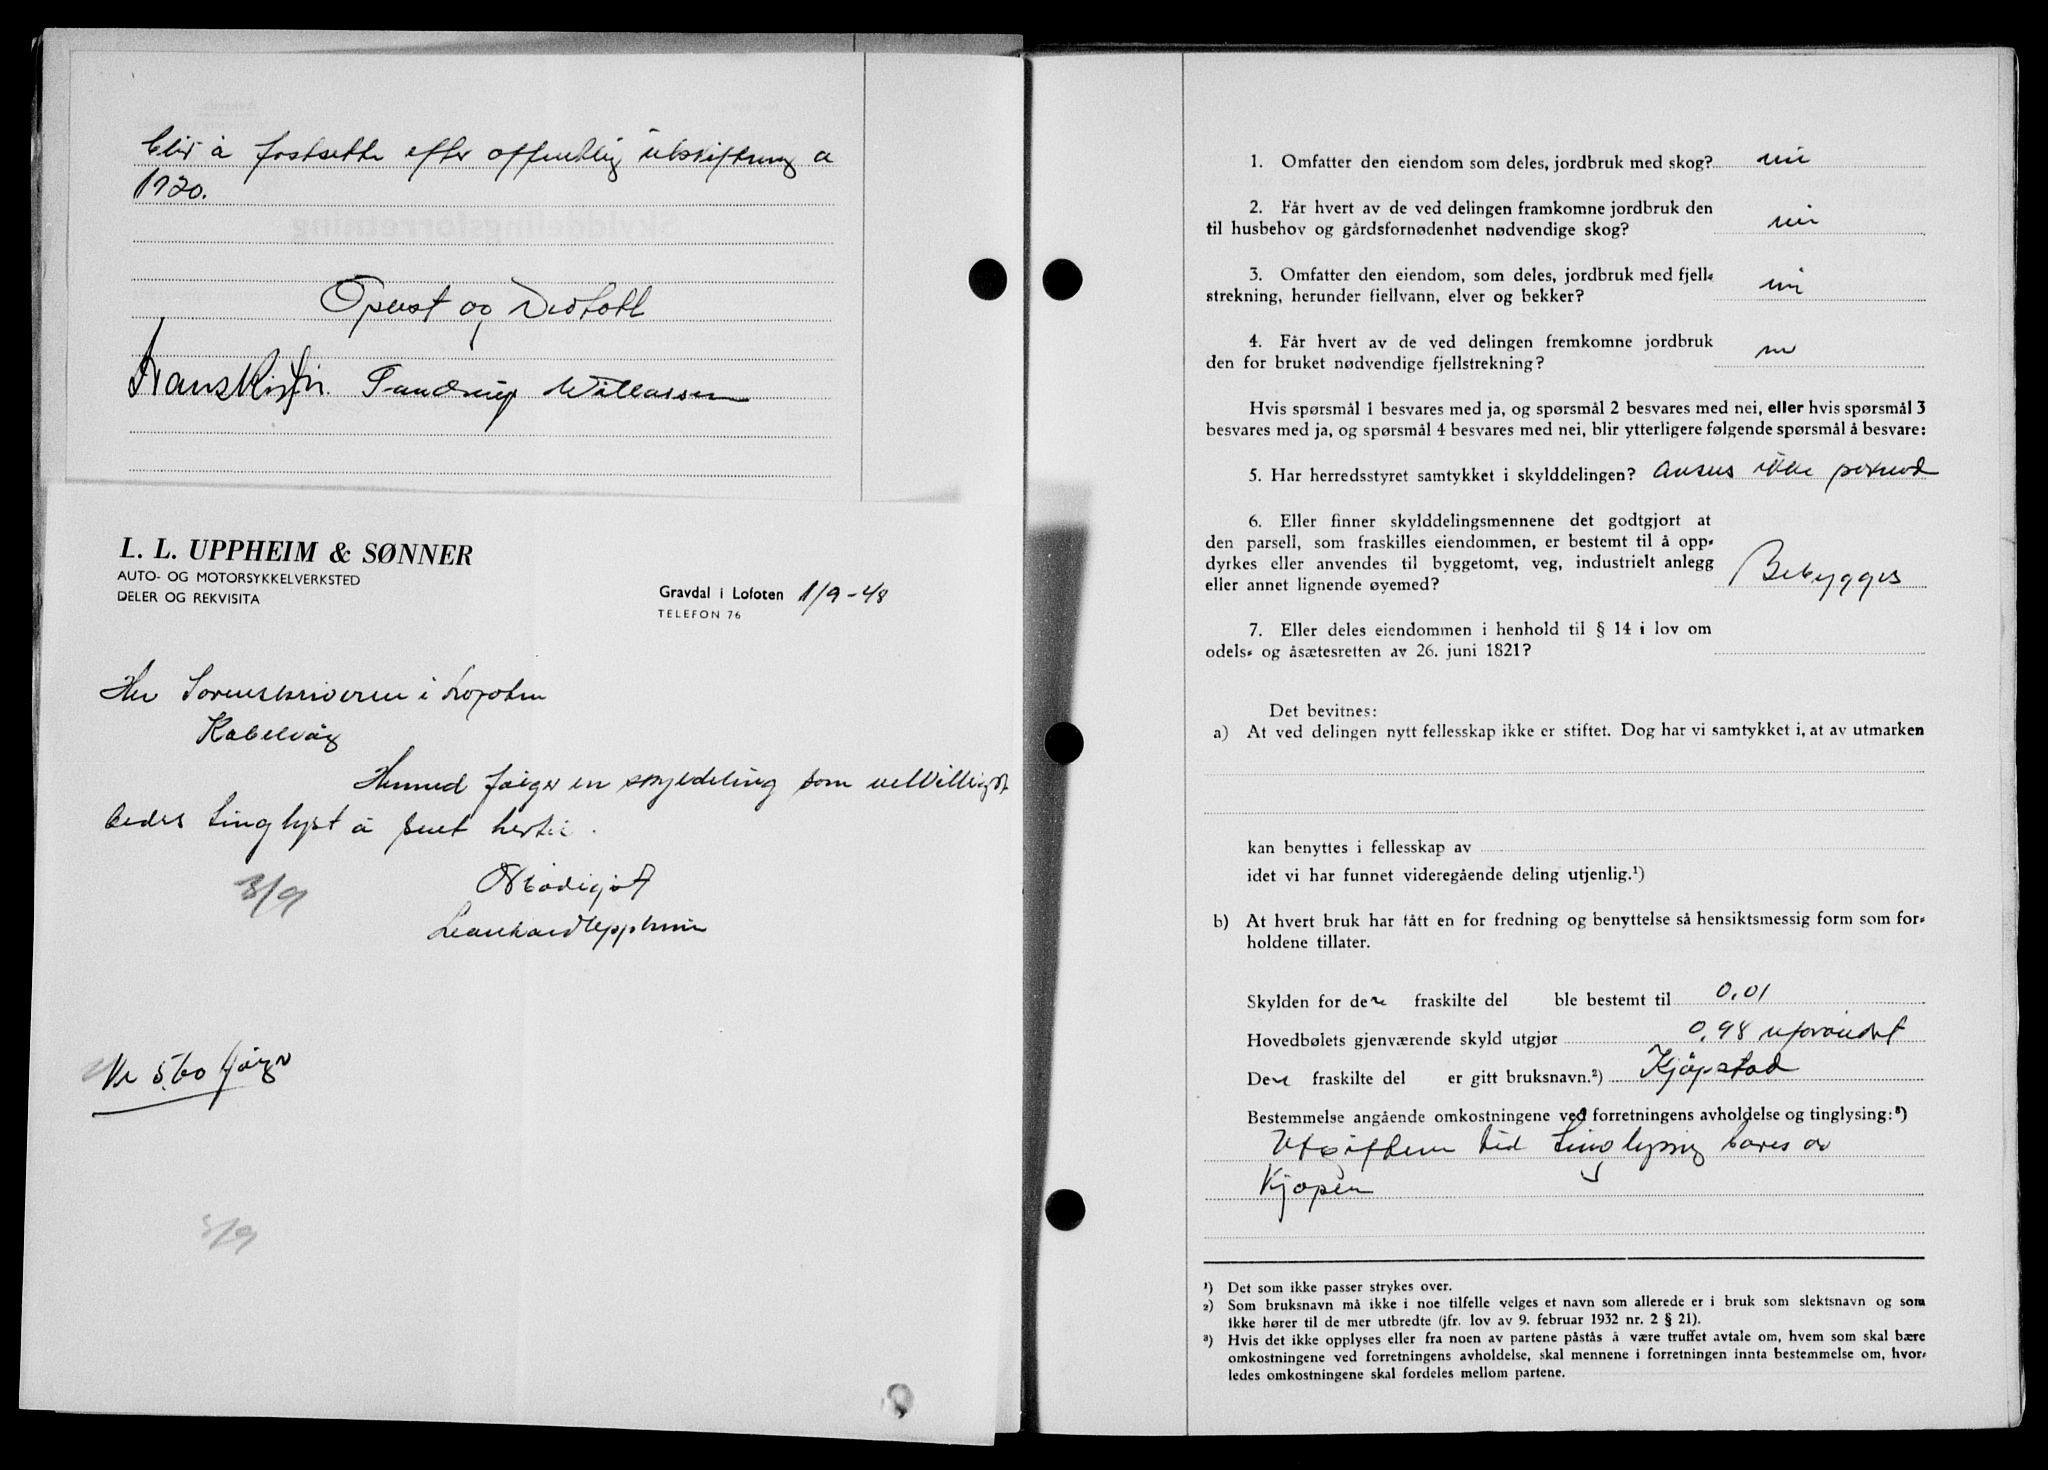 blir å fastsette efter offentlig utskiftning a
1920.
Opust og Vedtatt
Hans Kristr. Tandrup Willassen
L. L. UPPHEIM & SØNNER
AUTO- OG MOTORSYKKELVERKSTED
DELER OG REKVISITA
Gravdal i Lofoten 1/9-48
TELEFON 76
Her Sorenskriveren i Lofoten
Kabelvåg
Hermed følger en skyldeling som velvilligst
bedes tinglyst å sent hertil.
3/9
Ærbødigst
Leonhard Uppheim
Kr 5.60 følger
3/9
1. Omfatter den eiendom som deles, jordbruk med skog? nei
2. Får hvert av de ved delingen framkomne jordbruk den
til husbehov og gårdsfornødenhet nødvendige skog? nei
3. Omfatter den eiendom, som deles, jordbruk med fjell-
strekning, herunder fiellvann, elver og bekker? nei
4. Får hvert av de ved delingen fremkomne jordbruk
den for bruket nødvendige fjellstrekning? nei
Hvis spørsmål 1 besvares med ja, og spørsmål 2 besvares med nei, eller hvis spørsmål 3
besvares med ja, og spørsmål 4 besvares med nei, blir ytterligere følgende spørsmål å besvare:
5. Har herredsstyret samtykket i skylddelingen? ansees ikke
6. Eller finner skylddelingsmennene det godtgjort at
den parsell, som fraskilles eiendommen, er bestemt til å opp-
dyrkes eller anvendes til byggetomt, veg, industrielt anlegg
eller annet lignende øyemed? Bebygges
7. Eller deles eiendommen i henhold til § 14 i lov om
odels- og åsætesretten av 26. juni 1821?
Det bevitnes:
a) At ved delingen nytt fellesskap ikke er stiftet. Dog har vi samtykket i, at av utmarken
kan benyttes i fellesskap av
idet vi har funnet videregående deling utjenlig.¹)
b) At hvert bruk har fått en for fredning og benyttelse så hensiktsmessig form som for-
holdene tillater.
Skylden for den fraskilte del ble bestemt til 0,01
Hovedbølets gjenværende skyld utgjør 0,98 uforandret
Den fraskilte del er gitt bruksnavn.²) Kjøpstad
Bestemmelse angående omkostningene ved forretningens avholdelse og tinglysing:³)
Utgiftene ved tinglysing bæres av
Kjøperen
¹) Det som ikke passer strykes over.
²) Som bruksnavn må ikke i noe tilfelle velges et navn som allerede er i bruk som slektsnavn og som
ikke hører til de mer utbredte (jfr. lov av 9. februar 1932 nr. 2 § 21).
³) Hvis det ikke opplyses eller fra noen av partene påstås å være truffet avtale om, hvem som skal bære
omkostningene ved forretningens avholdelse, skal mennene i forretningen innta bestemmelse om, hvor-
ledes omkostningene skal fordeles mellom partene.